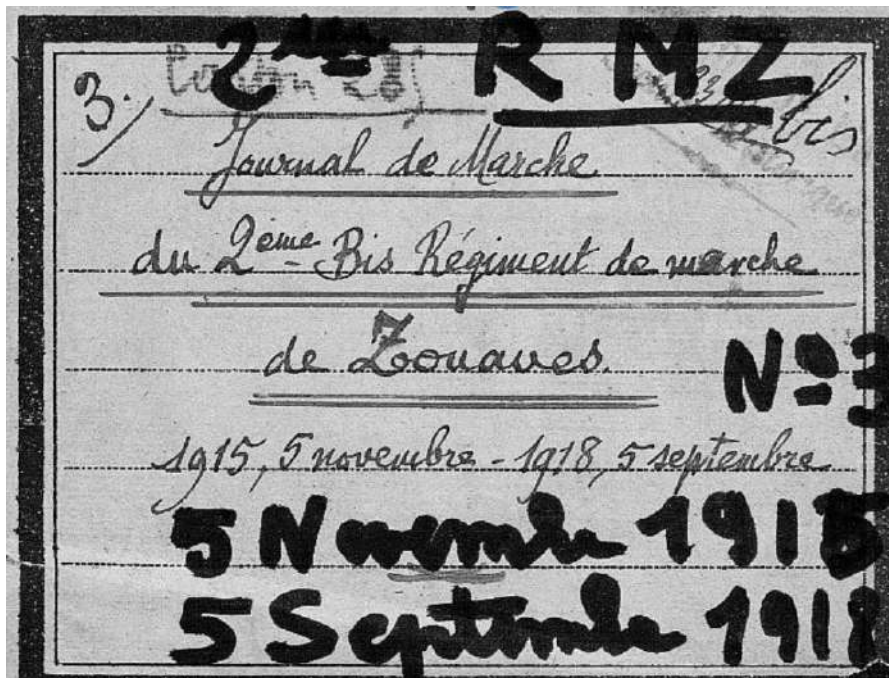 2ème R M Z
3./ bis
Journal de Marche
du 2ème Bis Régiment de marche
de Zouaves.
Nº 3
1915, 5 novembre - 1918, 5 septembre
5 Novembre 1915
5 Septembre 1918